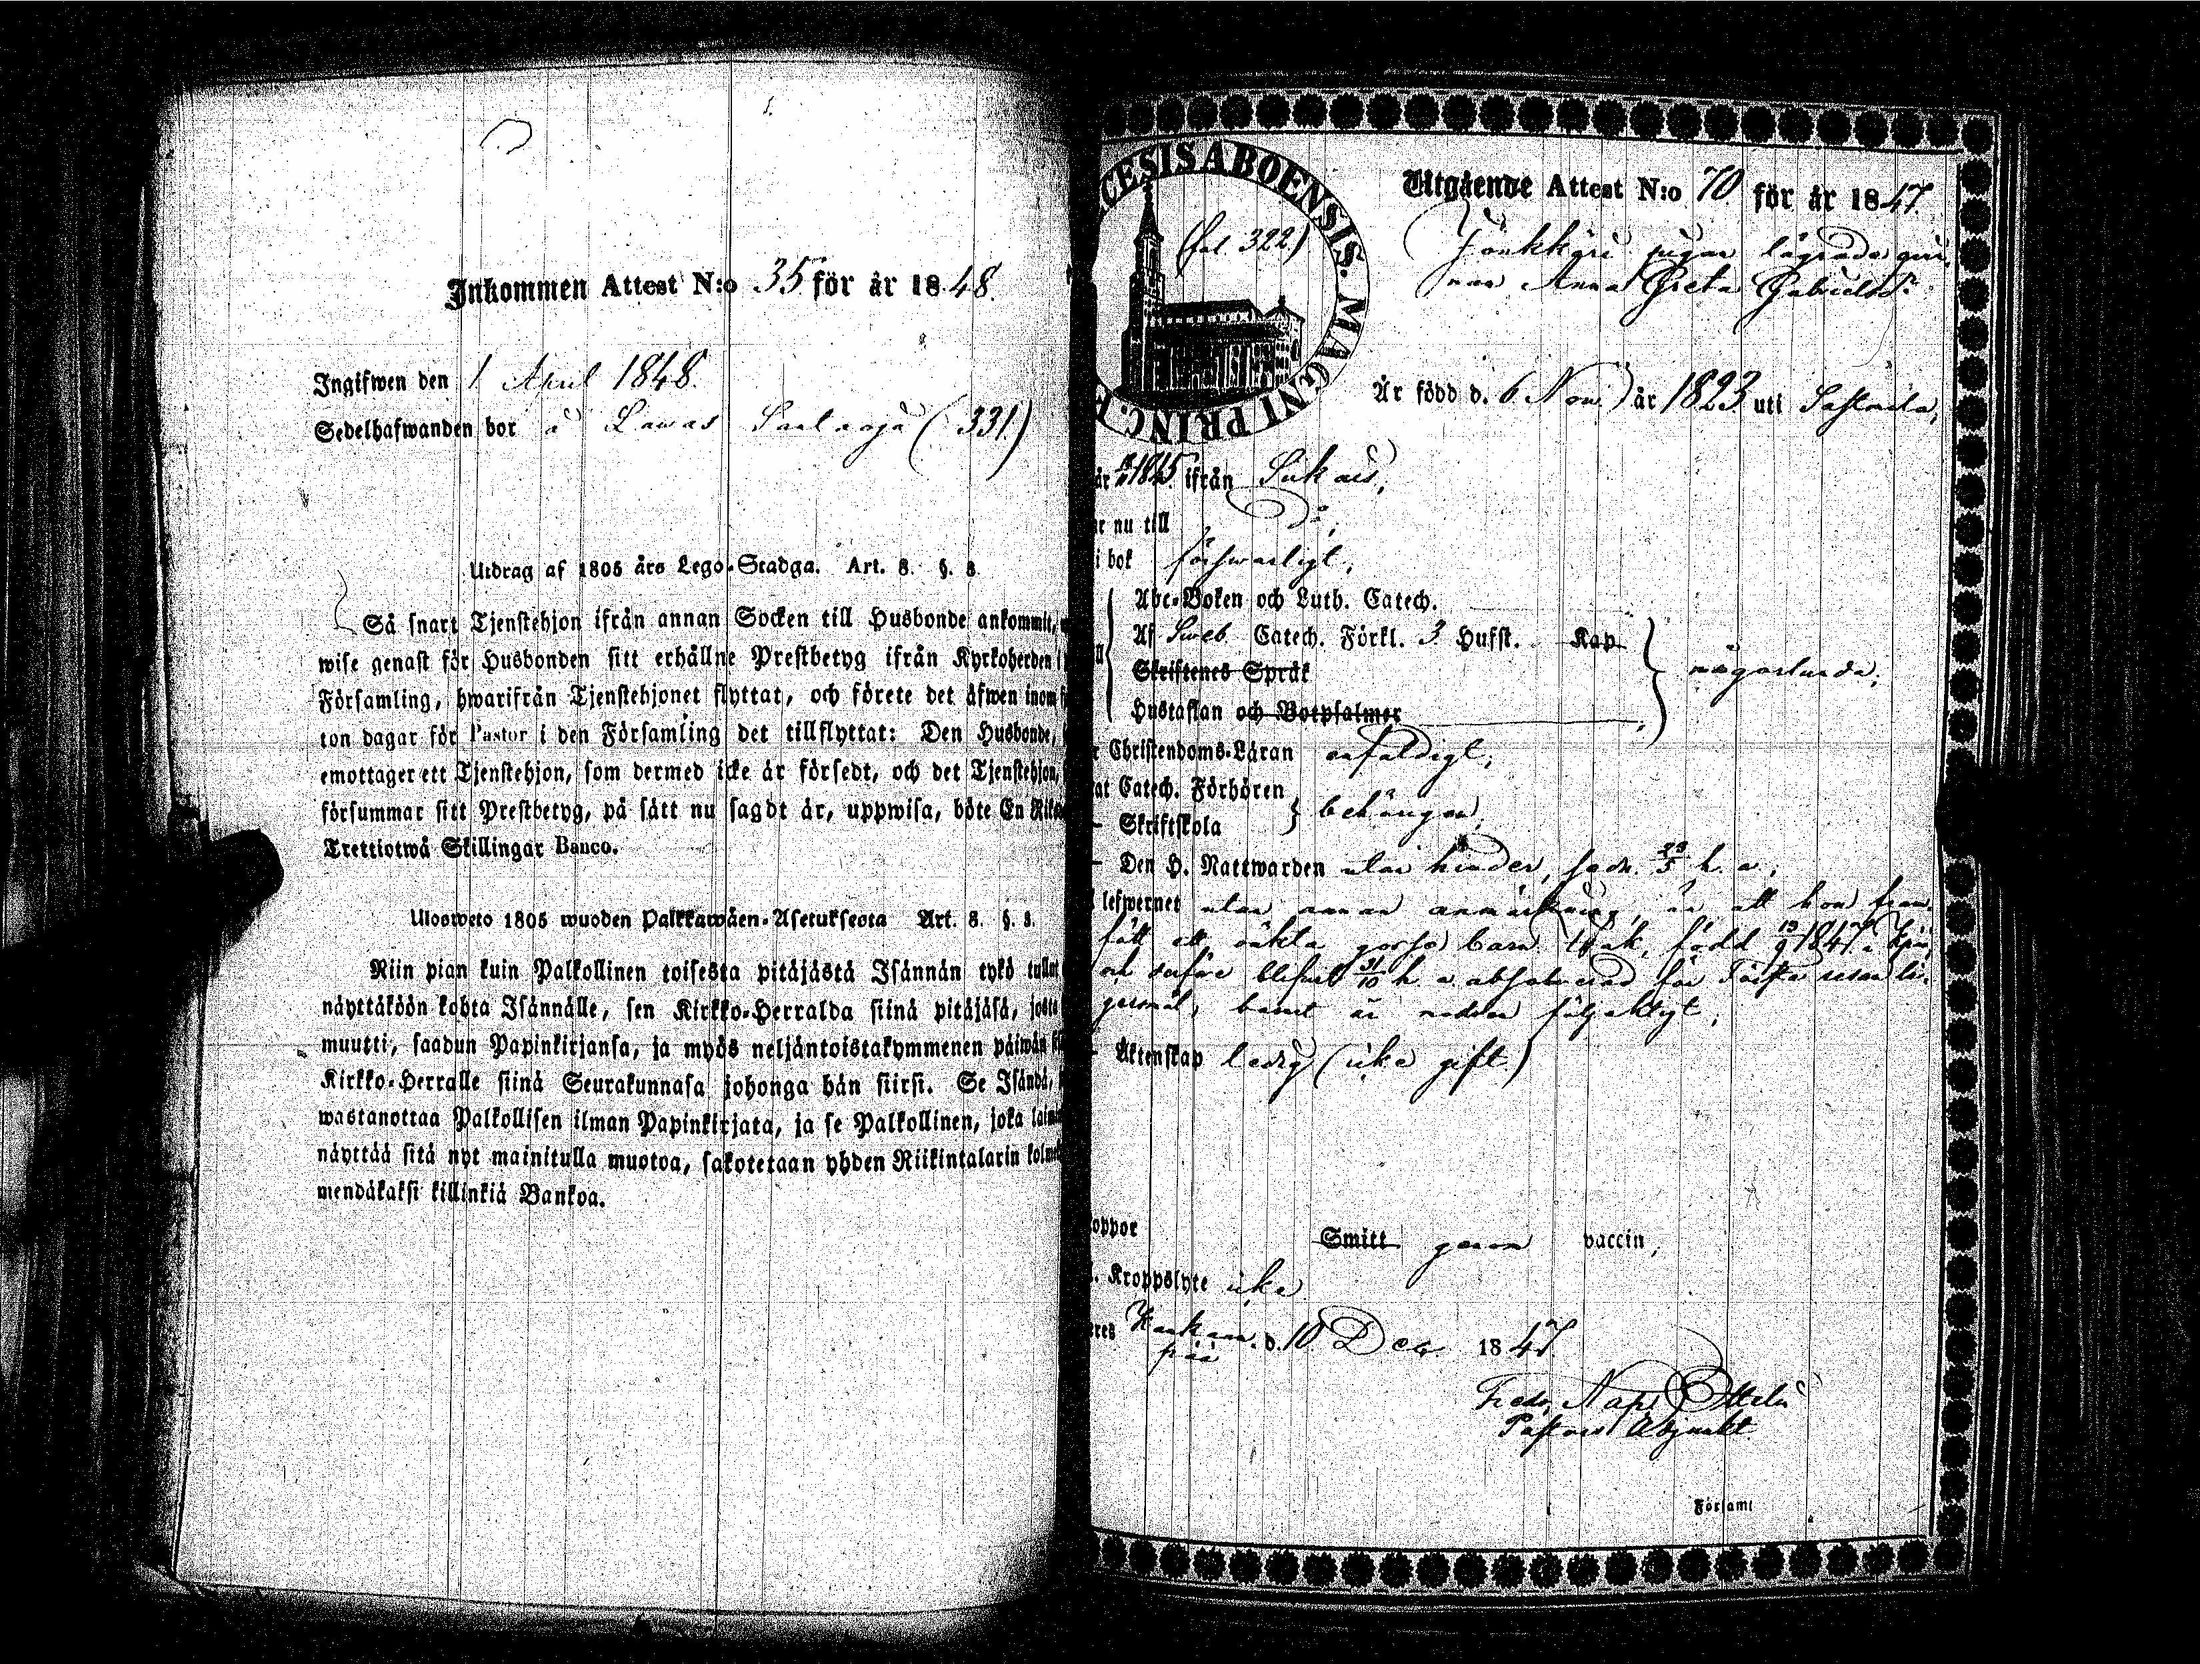 Inkommen Attest N:o 35 för år 1848.
Ingifwen den 1 April 1848.
Sedelhafwanden bor å Lawas (331.)
Utdrag af 1805 års Lego-Stadga. Art. 8. §. 8
Så snart Tjenstehjon ifrån annan Socken till Husbonde ankommit,
wise genast för Husbonden sitt erhållne Prestbetyg ifrån Kyrkoherden i
Församling, hwarifrån Tjenstehjonet flyttat, och förete det äfwen inom
ton dagar för Pastor i den Församling det tillflyttat: Den Husbonde,
emottager ett Tjenstehjon, som dermed icke är försedt, och det Tjenstehjon,
försummar sitt Prestbetyg, på sätt nu sagdt är, uppwisa, böte En
Trettiotwå Skillingar Banco.
Ulosweto 1805 wuoden Palkkawäen-Asetuksesta Art. 8. §. 8.
Niin pian kuin Palkollinen toisesta pitäjästä Isännän tykö
näyttäköön kohta Isännälle, sen Kirkko-Herralda siinä pitäjäsä,
muutti, saadun Papinkirjansa, ja myös neljäntoistakymmenen päiwän
Kirkko-Herralle siinä Seurakunnasa johonga hän siirsi. Se Isändä,
wastanottaa Palkollisen ilman Papinkirjata, ja se Palkollinen, joka
näyttää sitä nyt mainitulla muotoa, sakotetaan yhden Riikintalarin
mendäkaksi killinkiä Bankoa.
CESIS ABOENSIS. MAGNI PRINC.
(fol. 322)
Utgående Attest N:o 70 för år 1847.
Jonkkari pigan lägrade
nan Anna Greta Gabrielsdr
Är född d. 6 Nov. år 1823 uti Sastmola,
år 1845 ifrån
nu till Do,
i bok försvarligt,
Abc-Boken och Luth. Catech.
Af Sweb. Catech. Förkl. 3 Hufst. Kap
Skriftenes Språk
någorlunda,
Hustaflan och Botpsalmer
Christendoms-Läran enfaldigt,
Catech. Förhören
Skriftskola
behörigen,
Den H. Nattwarden utan hinder, sedn. 23/5 h. a.,
lefwernet utan annan anmärkning, än att hon fram-
fått ett oäkta barn född 1847
och derföre blifvit 31/10 h. a. absolverad för första resan lä-
gersmål, barnet är medföljaktigt,
Äktenskap ledig (icke gift)
oppor Smitt genom vaccin,
Kroppslyte icke
d. 10 Dec. 1847
Pastors Adjunkt.
Församl